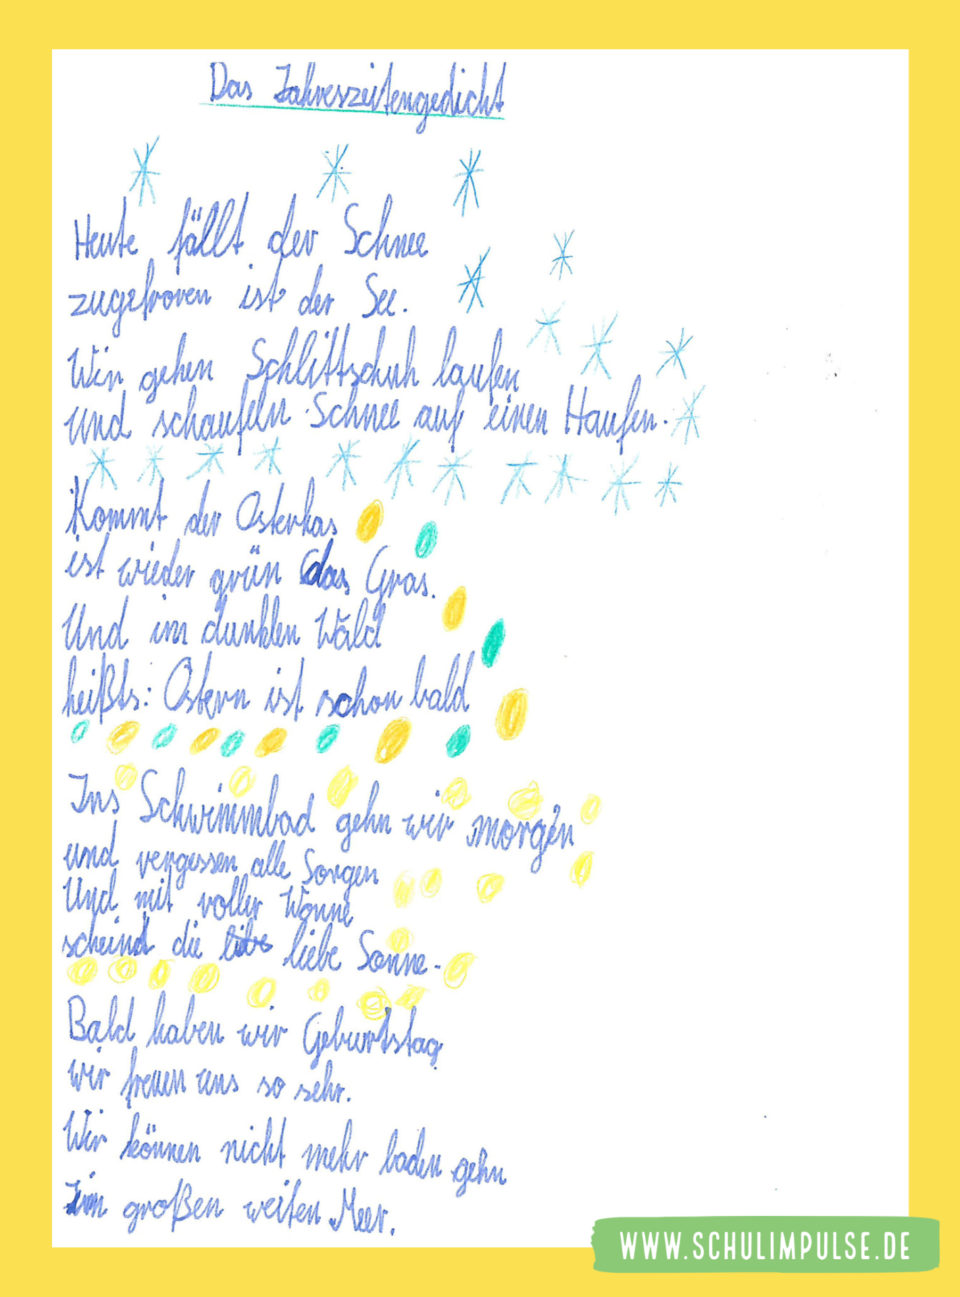 Das Jahreszeitengedicht
Heute fällt der Schnee
zugefroren ist der See.
Wir gehen Schlittschuh laufen
und schaufeln Schnee auf einen Haufen.
Kommt der Osterhas
ist wieder grün das Gras.
Und im dunklen Wald
heißts: Ostern ist schon bald
Ins Schwimmbad gehn wir morgen
und vergessen alle Sorgen
Und mit voller Wonne
scheind die liebe Sonne.
Bald haben wir Geburtstag
wir freuen uns so sehr.
Wir können nicht mehr baden gehn
im großen weiten Meer.
WWW.SCHULIMPULSE.DE